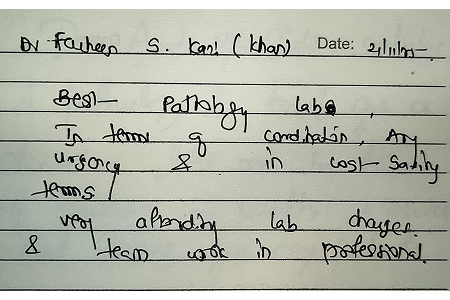 Dr Farheen S. Kazi (Khan) Date: 21/11/25
Best Pathology labs,
In terms of cordination, Any
urgency & in cost saving
terms
very affording lab charges.
& team work in professional.